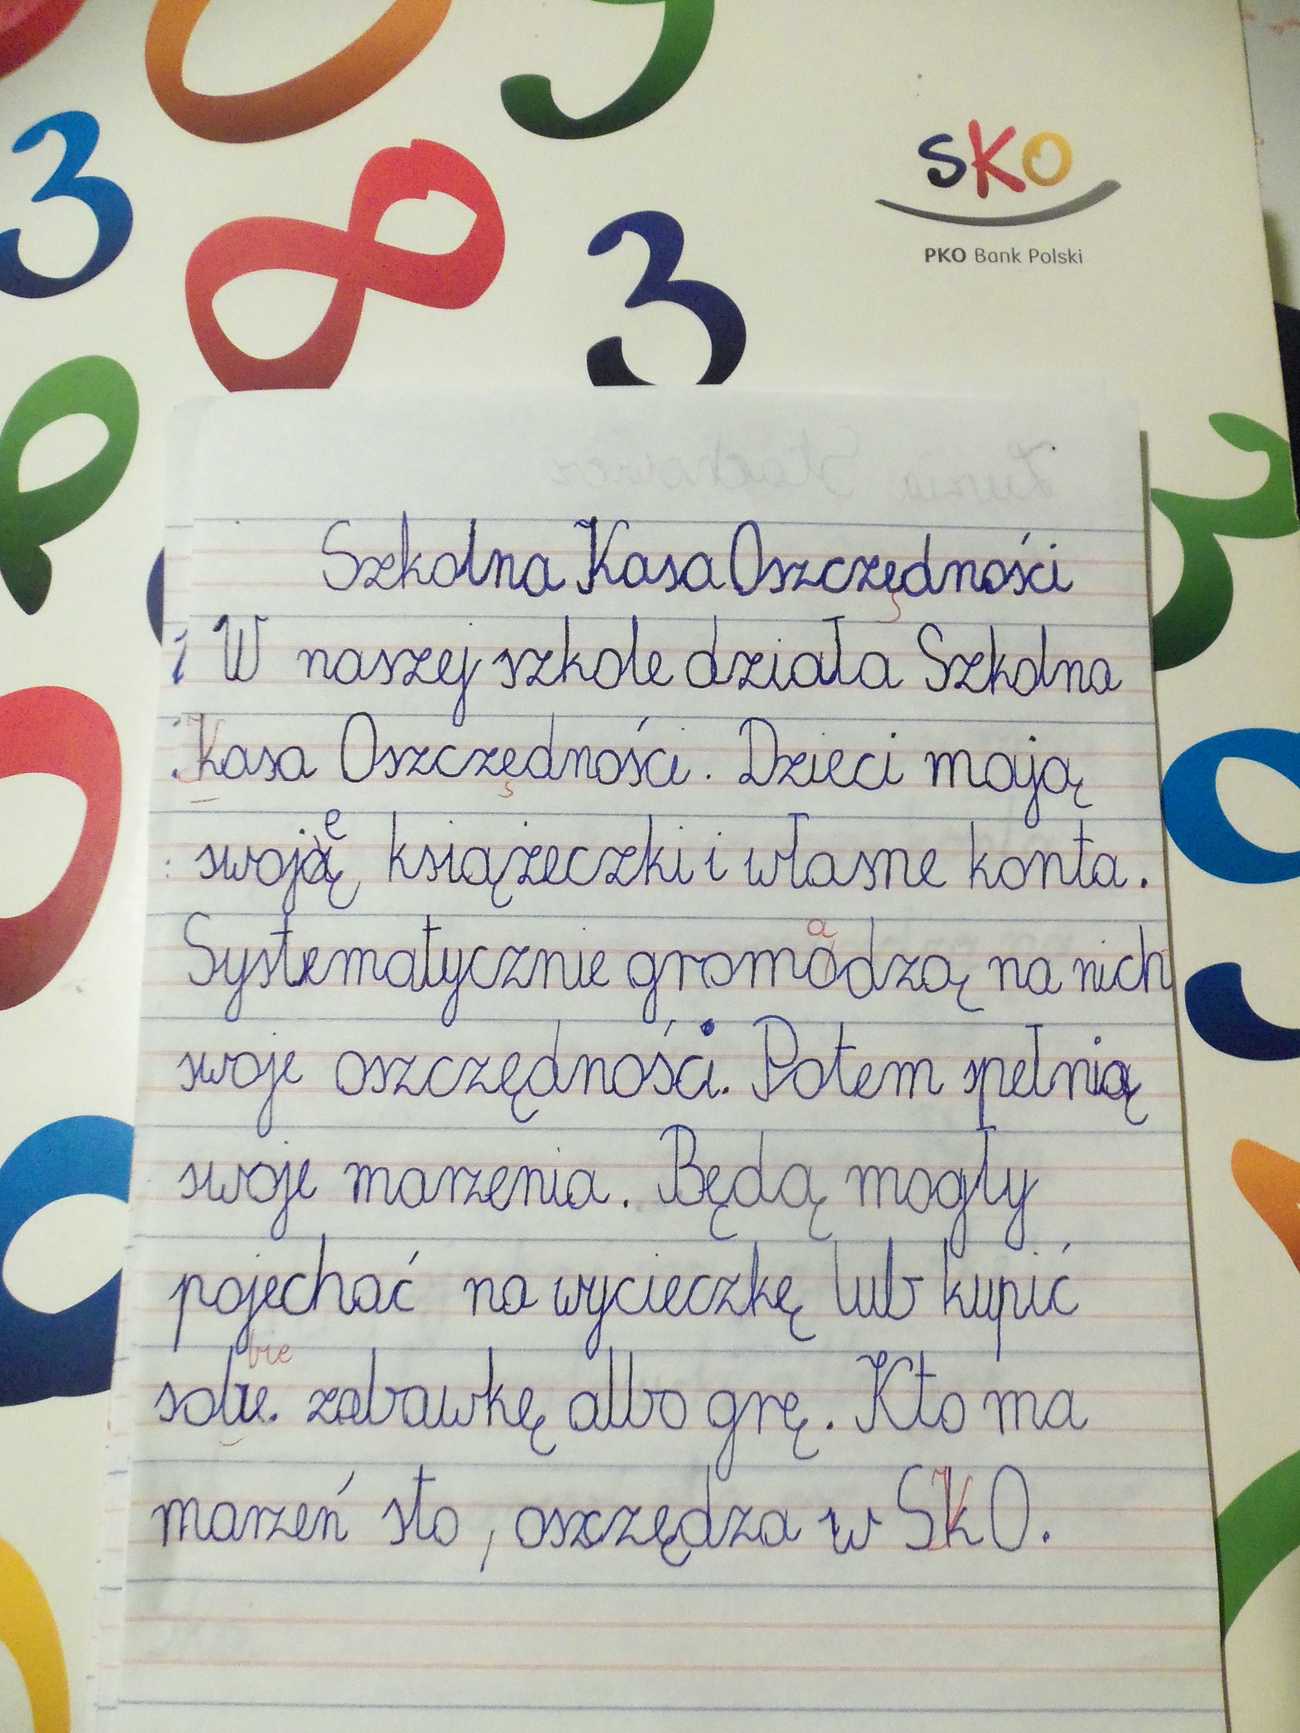 SKO
PKO Bank Polski
Szkolna Kasa Oszczędności
W naszej szkole działa Szkolna
Kasa Oszczędności. Dzieci mają
swoje książeczki i własne konta.
Systematycznie gromadzą na nich
swoje oszczędności. Potem spełnią
swoje marzenia. Będą mogły
pojechać na wycieczkę lub kupić
bie
sobie zabawkę albo grę. Kto ma
marzeń sto, oszczędza w SKO.